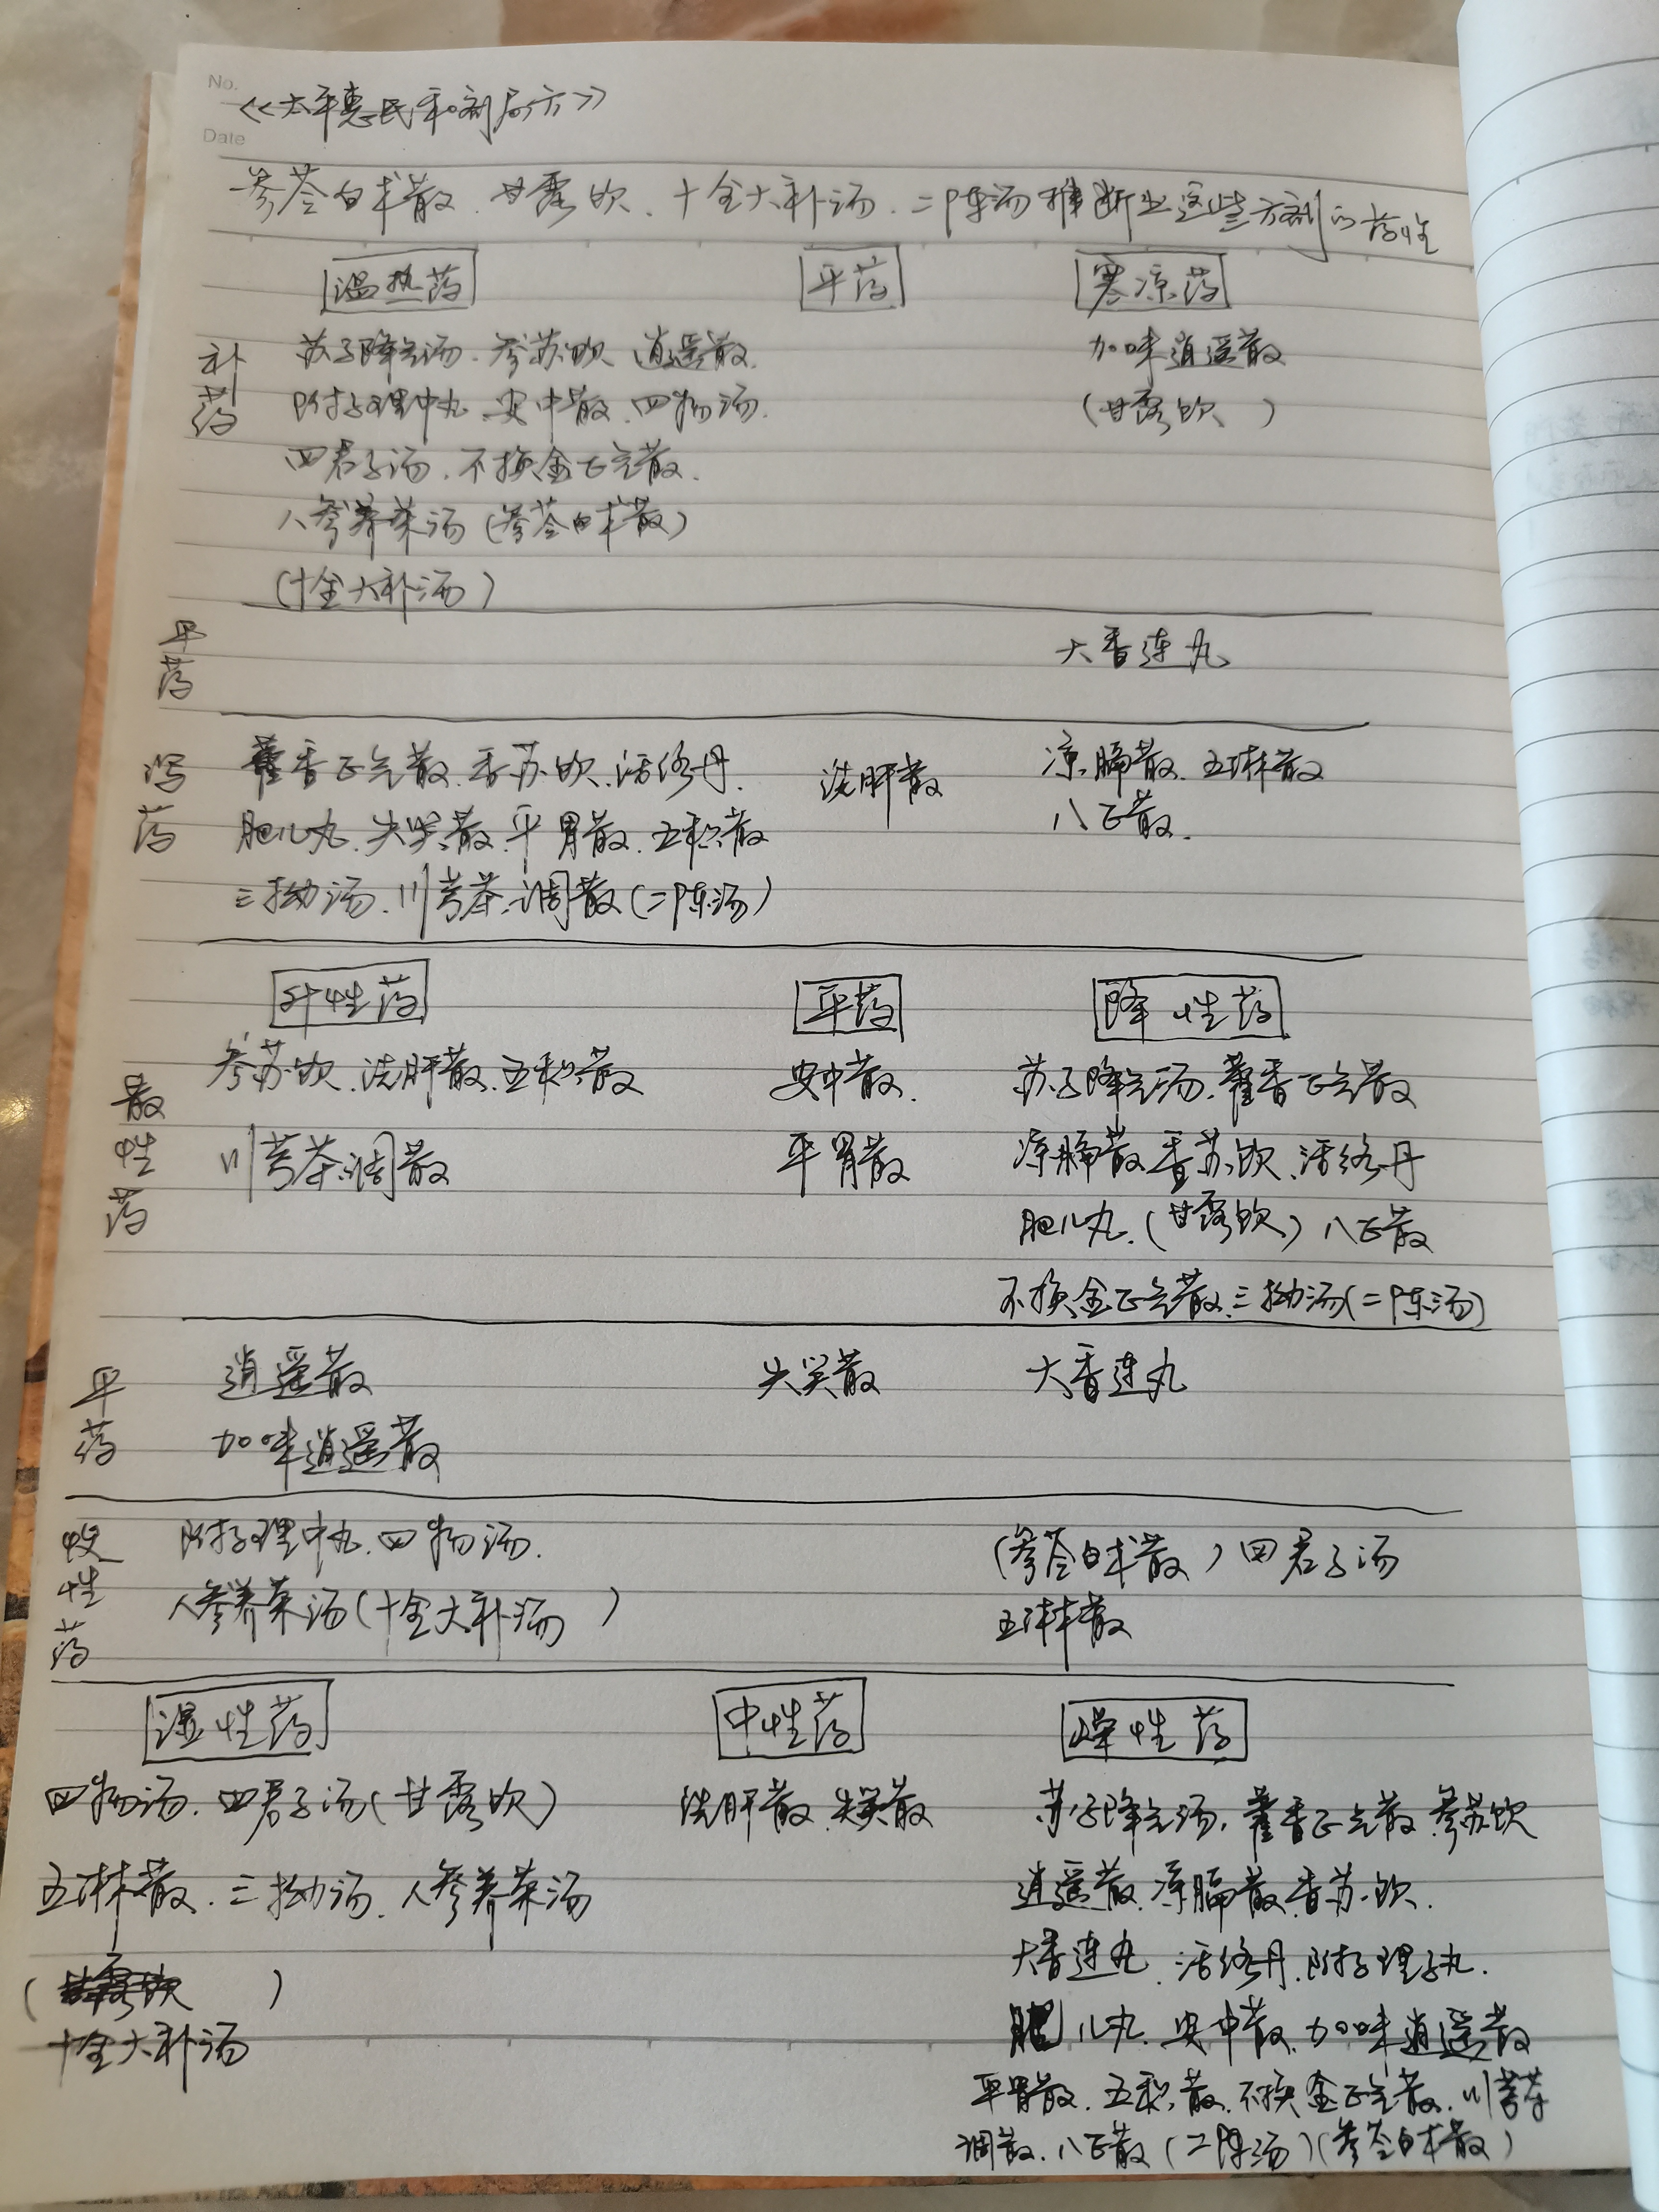 No.
《太平惠民和剂局方》
Date
参苓白术散、甘露饮、十全大补汤、二陈汤推断出这些方剂的药性
温热药 平药 寒凉药
补药 苏子降气汤、参苏饮、逍遥散、 加味逍遥散
附子理中丸、安中散、四物汤、 (甘露饮)
四君子汤、不换金正气散、
人参养荣汤(参苓白术散)
(十全大补汤)
平药 大香连丸
泻药 藿香正气散、香苏饮、活络丹、 洗肝散 凉膈散、五淋散
肥儿丸、失笑散、平胃散、五积散 八正散、
三拗汤、川芎茶调散(二陈汤)
升性药 平药 降性药
散性药 参苏饮、洗肝散、五积散 安中散、 苏子降气汤、藿香正气散
川芎茶调散 平胃散 凉膈散、香苏饮、活络丹
肥儿丸、(甘露饮)八正散
不换金正气散、三拗汤(二陈汤)
平药 逍遥散 失笑散 大香连丸
加味逍遥散
收性药 附子理中丸、四物汤、 (参苓白术散)四君子汤
人参养荣汤(十全大补汤) 五淋散
湿性药 中性药 燥性药
四物汤、四君子汤(甘露饮) 洗肝散、失笑散 苏子降气汤、藿香正气散、参苏饮
五淋散、三拗汤、人参养荣汤 逍遥散、凉膈散、香苏饮、
( ) 大香连丸、活络丹、附子理子丸、
十全大补汤 肥儿丸、安中散、加味逍遥散
平胃散、五积散、不换金正气散、川芎茶
调散、八正散(二陈汤)(参苓白术散)